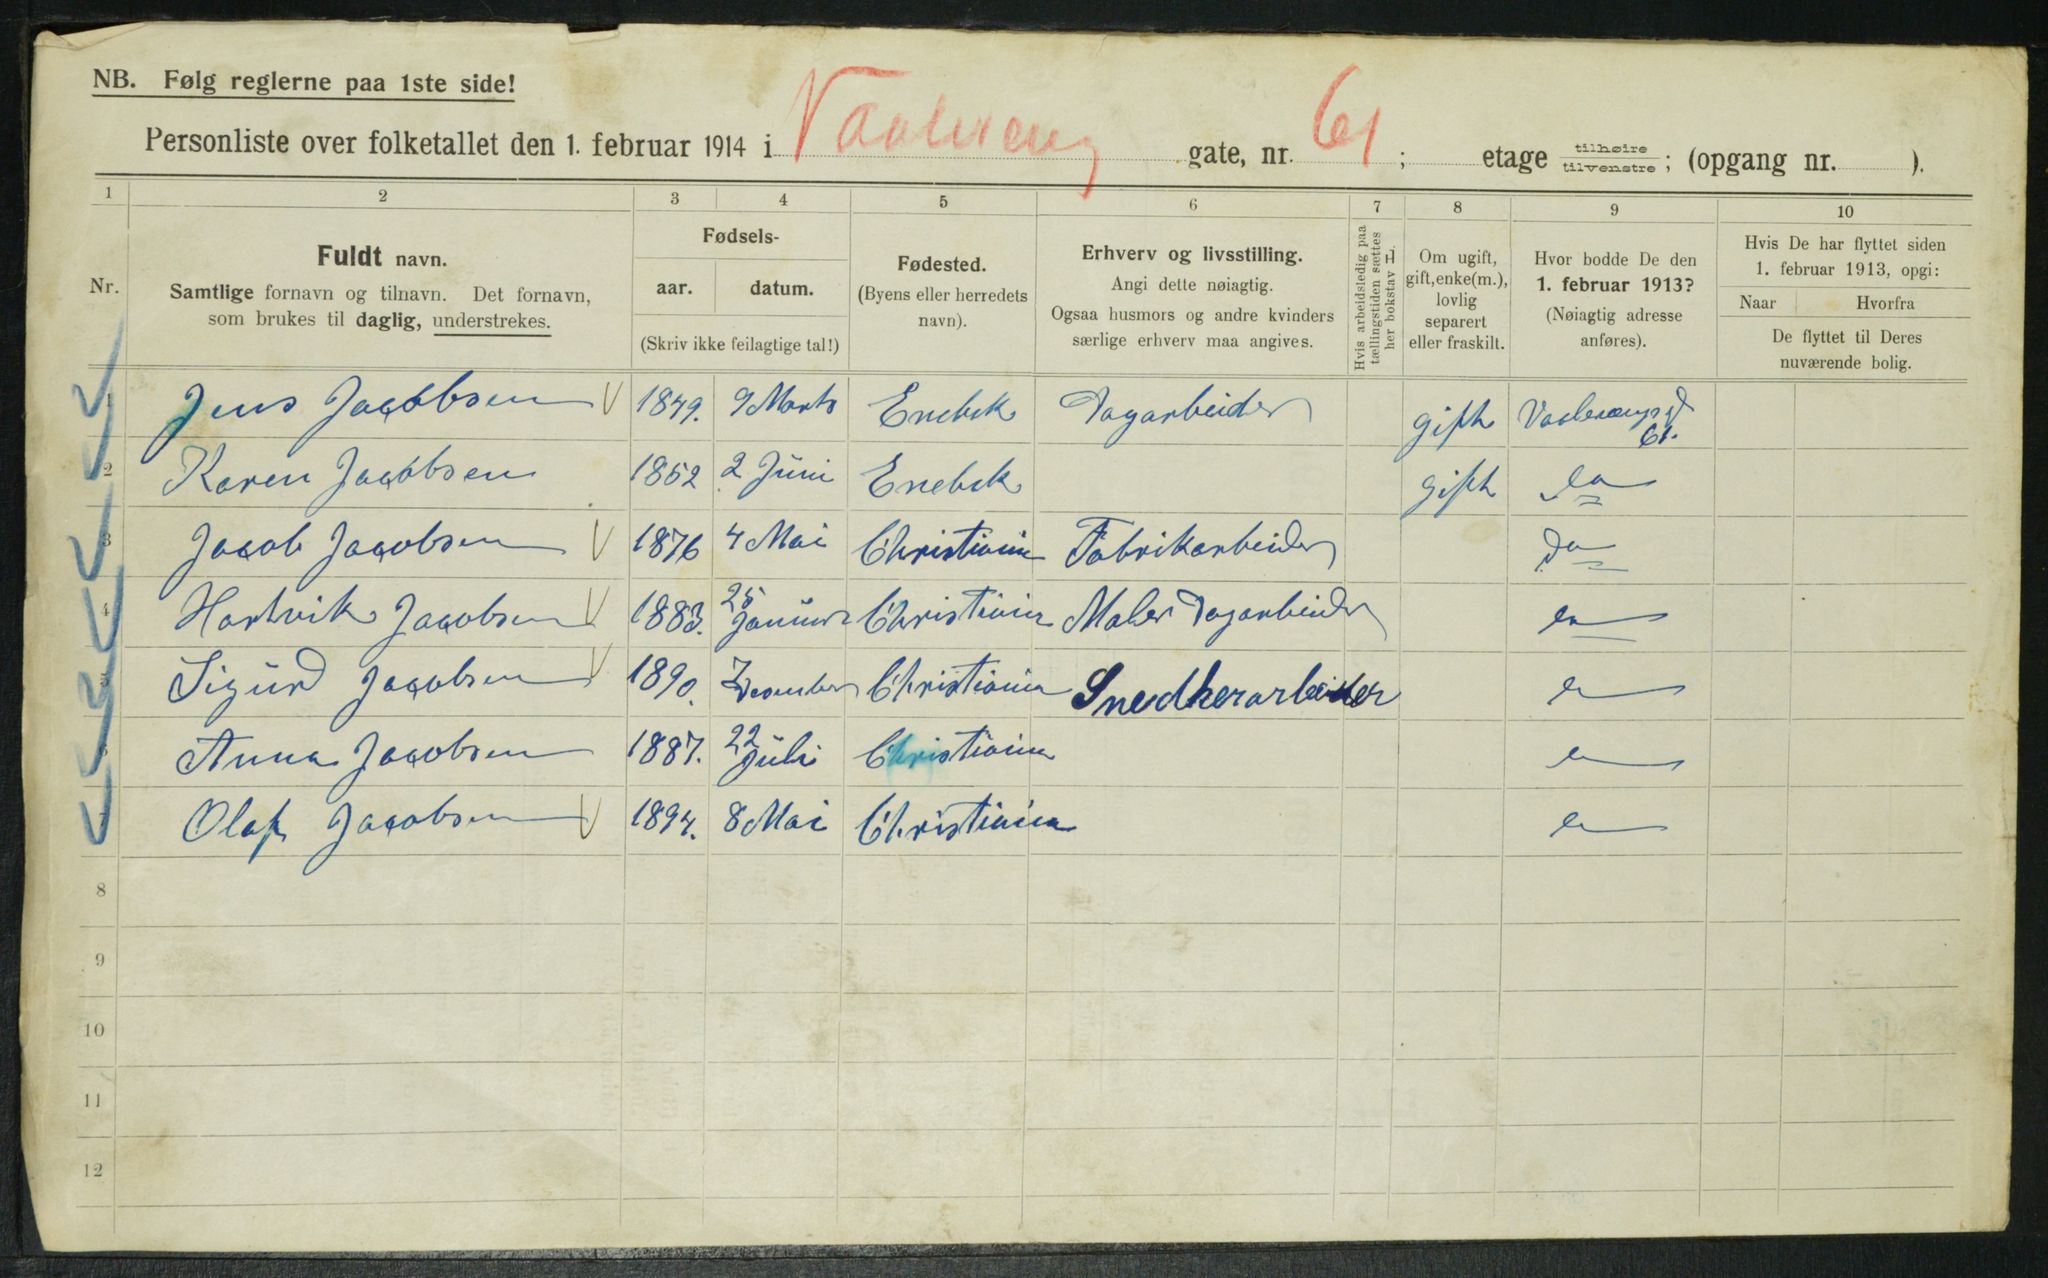 NB. Følg reglerne paa 1ste side!
Personliste over folketallet den 1. februar 1914 i Vaalereng gate, nr. 61 ; etage tilhøire tilvenstre ; (opgang nr. ).
1 2 3 4 5 6 7 8 9 10
Nr.
Fuldt navn.
Samtlige fornavn og tilnavn. Det fornavn,
som brukes til daglig, understrekes.
Fødsels-
aar. datum.
(Skriv ikke feilagtige tal!)
Fødested.
(Byens eller herredets
navn).
Erhverv og livsstilling.
Angi dette nøiagtig.
Ogsaa husmors og andre kvinders
særlige erhverv maa angives.
Hvis arbeidsledig paa
tællingstiden sættes
her bokstav L.
Om ugift,
gift, enke(m.),
lovlig
separert
eller fraskilt.
Hvor bodde De den
1. februar 1913?
(Nøiagtig adresse
anføres).
Hvis De har flyttet siden
1. februar 1913, opgi:
Naar Hvorfra
De flyttet til Deres
nuværende bolig.
1 Jens Jacobsen 1849. 9 Marts Enebak Dagarbeider gift Vaalerengsgd 61.
2 Karen Jacobsen 1852 2 Juni Enebak gift do
3 Jacob Jacobsen 1876 4 Mai Christiania Fabrikarbeider do
4 Hartvik Jacobsen 1883. 25 Januar Christiania Maler Dagarbeider
5 Sigurd Jacobsen 1890. 7 Desember Christiania Snedkerarbeider
6 Anna Jacobsen 1887. 22 Juli Christiania
7 Olaf Jacobsen 1894. 8 Mai Christiania
8
9
10
11
12